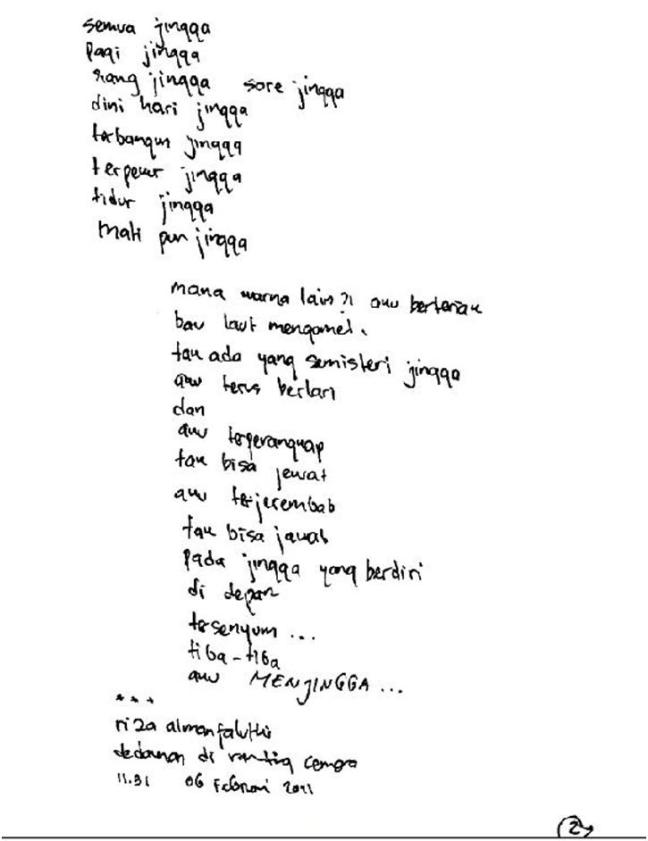 semua jingga
pagi jingga
siang jingga sore jingga
dini hari jingga
terbangun jingga
terpekur jingga
tidur jingga
mati pun jingga
mana warna lain?! aku berteriak
bau laut mengomel.
tak ada yang semisteri jingga
aku terus berlari
dan
aku tergerangkap
tak bisa lewat
aku terjerembab
tak bisa jawab
pada jingga yang berdiri
di depan
tersenyum ...
tiba-tiba
aku MENJINGGA ...
***
riza almanfaluthi
dedaunan di ranting cemara
11.31 06 Februari 2011
2